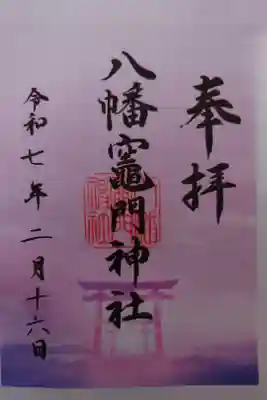 奉拝
八幡竈門神社
令和七年二月十六日